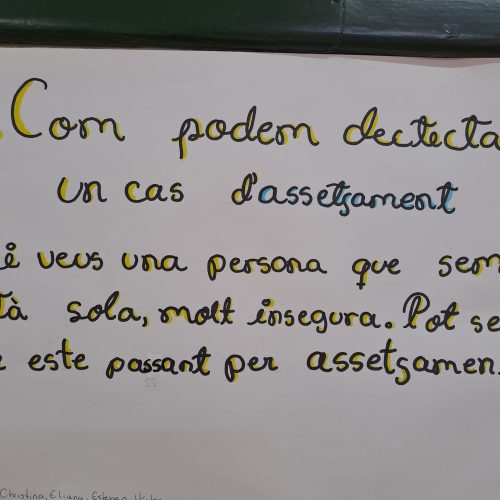 Com podem dectecta
un cas d'assetjament
i veus una persona que sem
tà sola, molt insegura. Pot se
e este passant per assetjamen
ss
Christina, Eliana, Esteban,